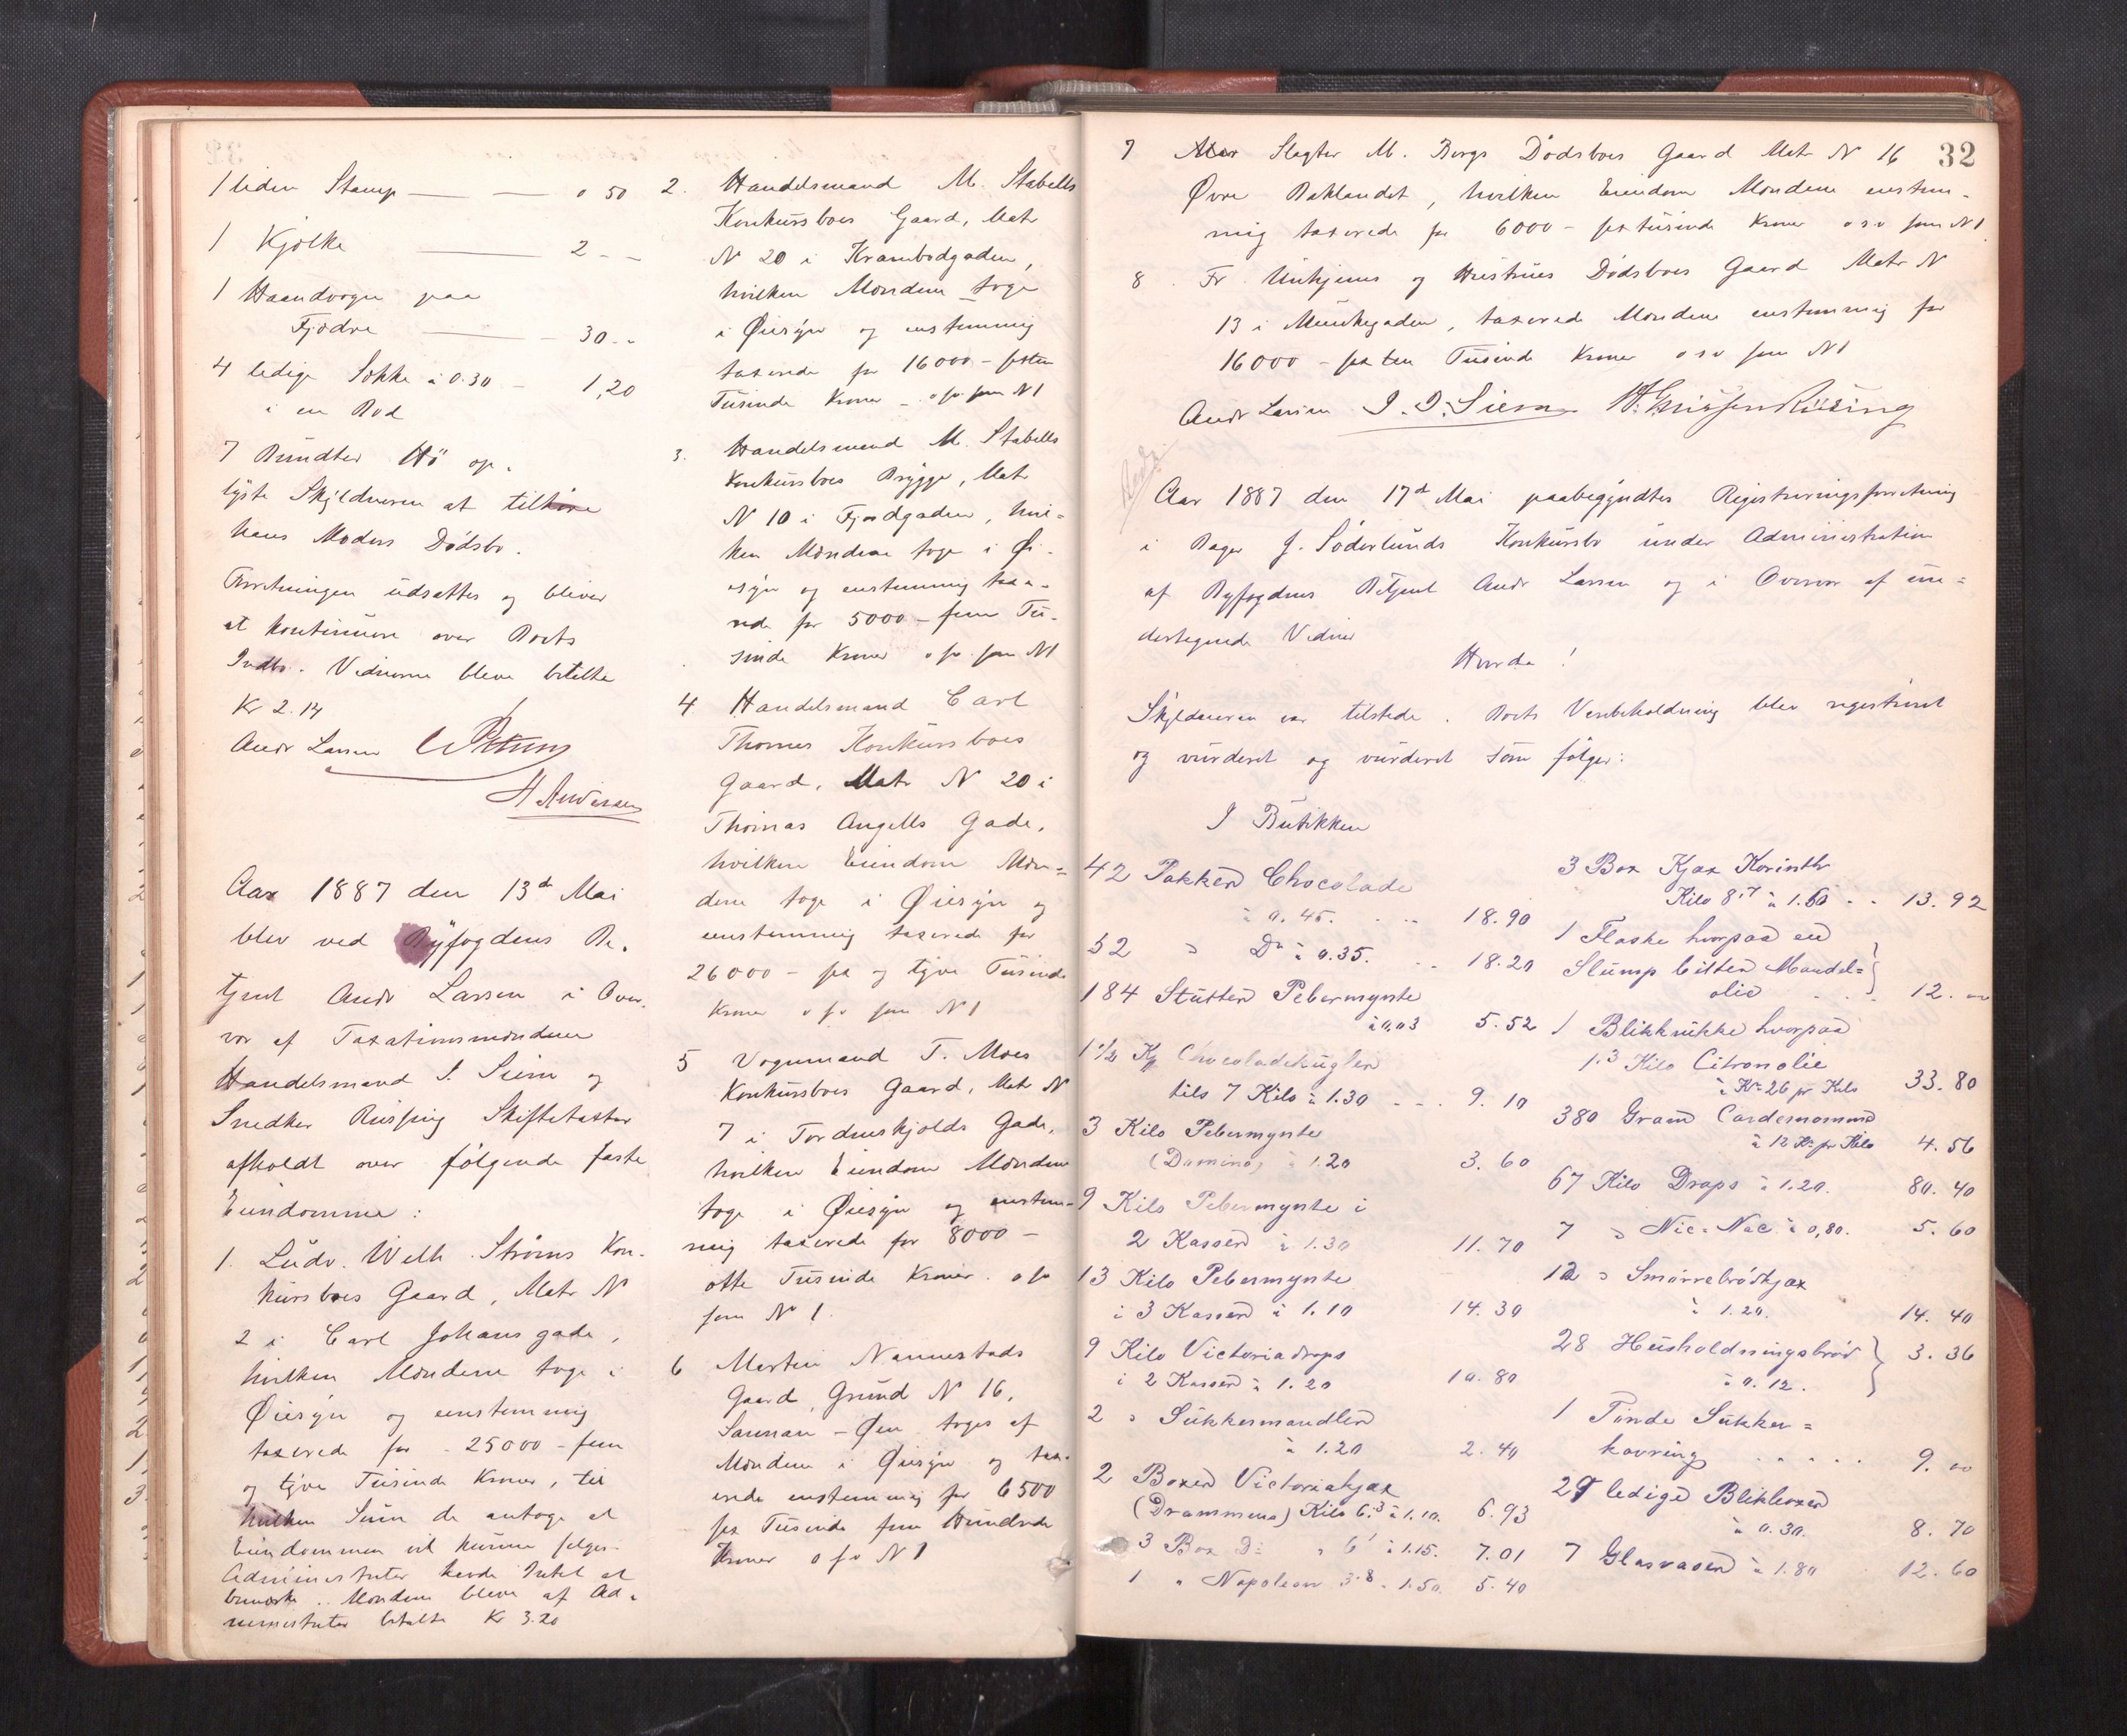 1 liden Stamp — — 0 50
1 Kjølke — 2 - -
1 Haandvogn paa
Fjødre — - 30 - -
4 ledige Sække à 0.30 - 1,20
i en Bod
7 Bundter Hö op-
lyste Skyldneren at tilhøre
hans Moders Dødsbo.
Forretningen udsattes og bliver
at kontinuere over Boets
Indbo. Vidnerne bleve betalte
Kr 2.14
Andr Larsen
H Andersen
Aar 1887 den 13de Mai
blev ved Byfogdens Be-
tjent Andr Larsen i Over-
vær af Taxationsmændene
Handelsmand I. Siem og
Snedker Ruissing Skiftetaxter
afholdt over følgende faste
Eiendomme:
1. Ludv. Wilh. Strøms Kon-
kursboes Gaard, Matr N
2 i Carl Johans gade,
hvilken Mændene toge i
Øiesyn og eenstemmig
taxerede for - 25000 - fem
og tyve Tusinde Kroner, til
hvilken Sum de antoge at
Eiendommen vil kunne sælges.
Administrator havde Intet at
bemærke. Mændene bleve af Ad-
ministrator betalte Kr 3.20
2. Handelsmand M. Stabells
Konkursboes Gaard, Matr
N 20 i Krambodgaden,
hvilken Mændene toge
i Øiesyn og enstemmig
taxerede for 16000 - sexten
Tusinde Kroner - o s v som N 1
3. Handelsmand M. Stabells
Konkursboes Brygge, Matr
N 10 i Fjordgaden, hvil-
ken Mændene toge i Øi-
esyn og enstemmig taxe-
rede for 5000 - fem Tu-
sinde Kroner o s v som N 1
4 Handelsmand Carl
Thornes Konkursboes
Gaard, Matr N 20 i
Thomas Angells Gade,
hvilken Eiendom Mæn-
dene toge i Øiesyn og
eenstemmig taxerede for
26000 - sex og tyve Tusinde
Kroner o s v som N 1
5 Vognmand T. Moes
Konkursboes Gaard, Matr N
7 i Tordenskjolds Gade,
hvilken Eiendom Mændene
toge i Øiesyn og enstem-
mig taxerede for 8000 -
otte Tusinde Kroner. o s v
som N 1.
6 Martin Nannestads
Gaard, Grund N 16,
Sannan - Øen toges af
Mændene i Øiesyn og tax-
erede enstemmig for 6500
sex Tusinde fem Hundrede
Kroner o s v N 1
32
7 Slagter M. Bergs Dødsboes Gaard Matr N 16
Øvre Baklandet, hvilken Eiendom Mændene enstem-
mig taxerede for 6000 - sextusinde Kroner o s v som N 1
8. Fr. Unhjems og Hustrues Dødsboes Gaard Matr N
13 i Munkegaden, taxerede Mændene enstemmig for
16000 - sexten Tusinde Kroner o s v som N 1
Andr Larsen I. I. Siem
Aar 1887 den 17de Mai paabegyndtes Registreringsforretning
i Bager J. Söderlunds Konkursbo under Administration
af Byfogdens Betjent Andr Larsen og i Overvær af un-
dertegnede Vidner
Hvorda!
Skyldneren var tilstede. Boets Varebeholdning blev registreret
og vurderet og vurderet som følger:
I Butikken
42 Pakker Chocolade
à 0.45. - - 18.90
52 " Do à 0.35. - - 18.20
184 Stutter Pebermynte
à 0,03 5.52
1 1/2 Kg Chocoladekugler
tils 7 Kilo à 1.30 - - - 9.10
3 Kilo Pebermynte
(Domino) à 1.20 3.60
9 Kilo Pebermynte i
2 Kasser à 1.30 11.70
13 Kilo Pebermynte
i 3 Kasser à 1.10 14.30
9 Kilo Victoriadrops
i 2 Kasser à 1.20 10.80
2 " Sukkermandler
à 1.20 2.40
2 Boxer Victoriakjax
(Drammens) Kilo 6.3 à 1.10. 6.93
3 Box Do " 6.1 à 1.15. 7.01
1 " Napoleon 3.8 - 1.50. 5.40
3 Box Kjax Korinth
Kilo 8.7 à 1.60 - - 13.92
1 Flaske hvorpaa en
Slump bitter Mandel=
olie . . . 12. 00
1 Blikkrukke hvorpaa
1.3 Kilo Citronolie
à Kr 26 pr Kilo 33.80
380 Gram Cardemomme
à 12 Kr pr Kilo 4.56
67 Kilo Drops à 1.20. 80.40
7 " Nic-Nac à 0,80. 5.60
12 " Smörrebrödkjax
à 1.20. 14.40
28 Husholdningsbröd 3.36
à 0.12.
1 Tönde Sukker=
kavring . . . . . 9. 00
29 ledige Blikboxer
à 0.30. 8.70
7 Glasvaser à 1.80 12.60